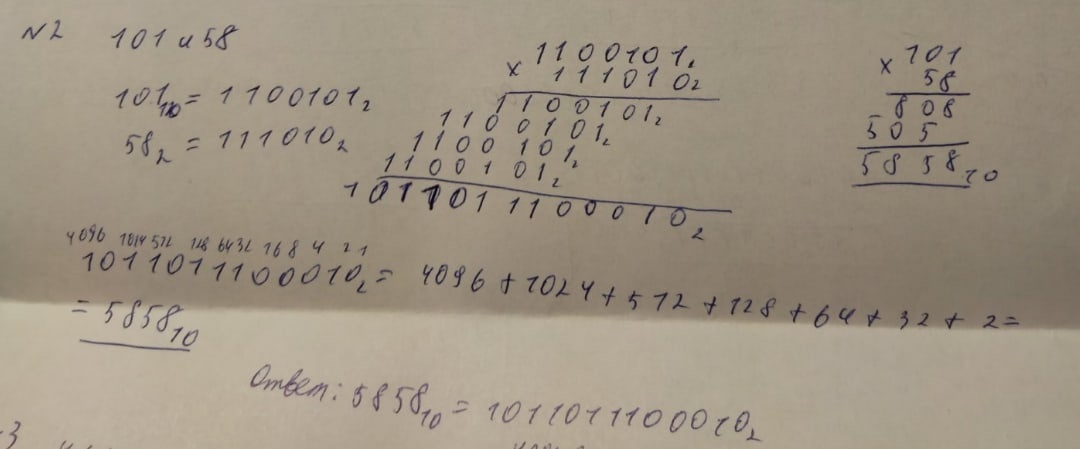 №2 101 и 58
101₁₀ = 1100101₂
58₂ = 111010₂
1100101₂
× 111010₂
1100101₂
1100101₂
1100101₂
1100101₂
1011011100010₂
× 101
58
808
505
5858₁₀
4096 1024 512 128 64 32 16 8 4 2 1
1011011100010₂ = 4096 + 1024 + 512 + 128 + 64 + 32 + 2 =
= 5858₁₀
Ответ: 5858₁₀ = 1011011100010₂